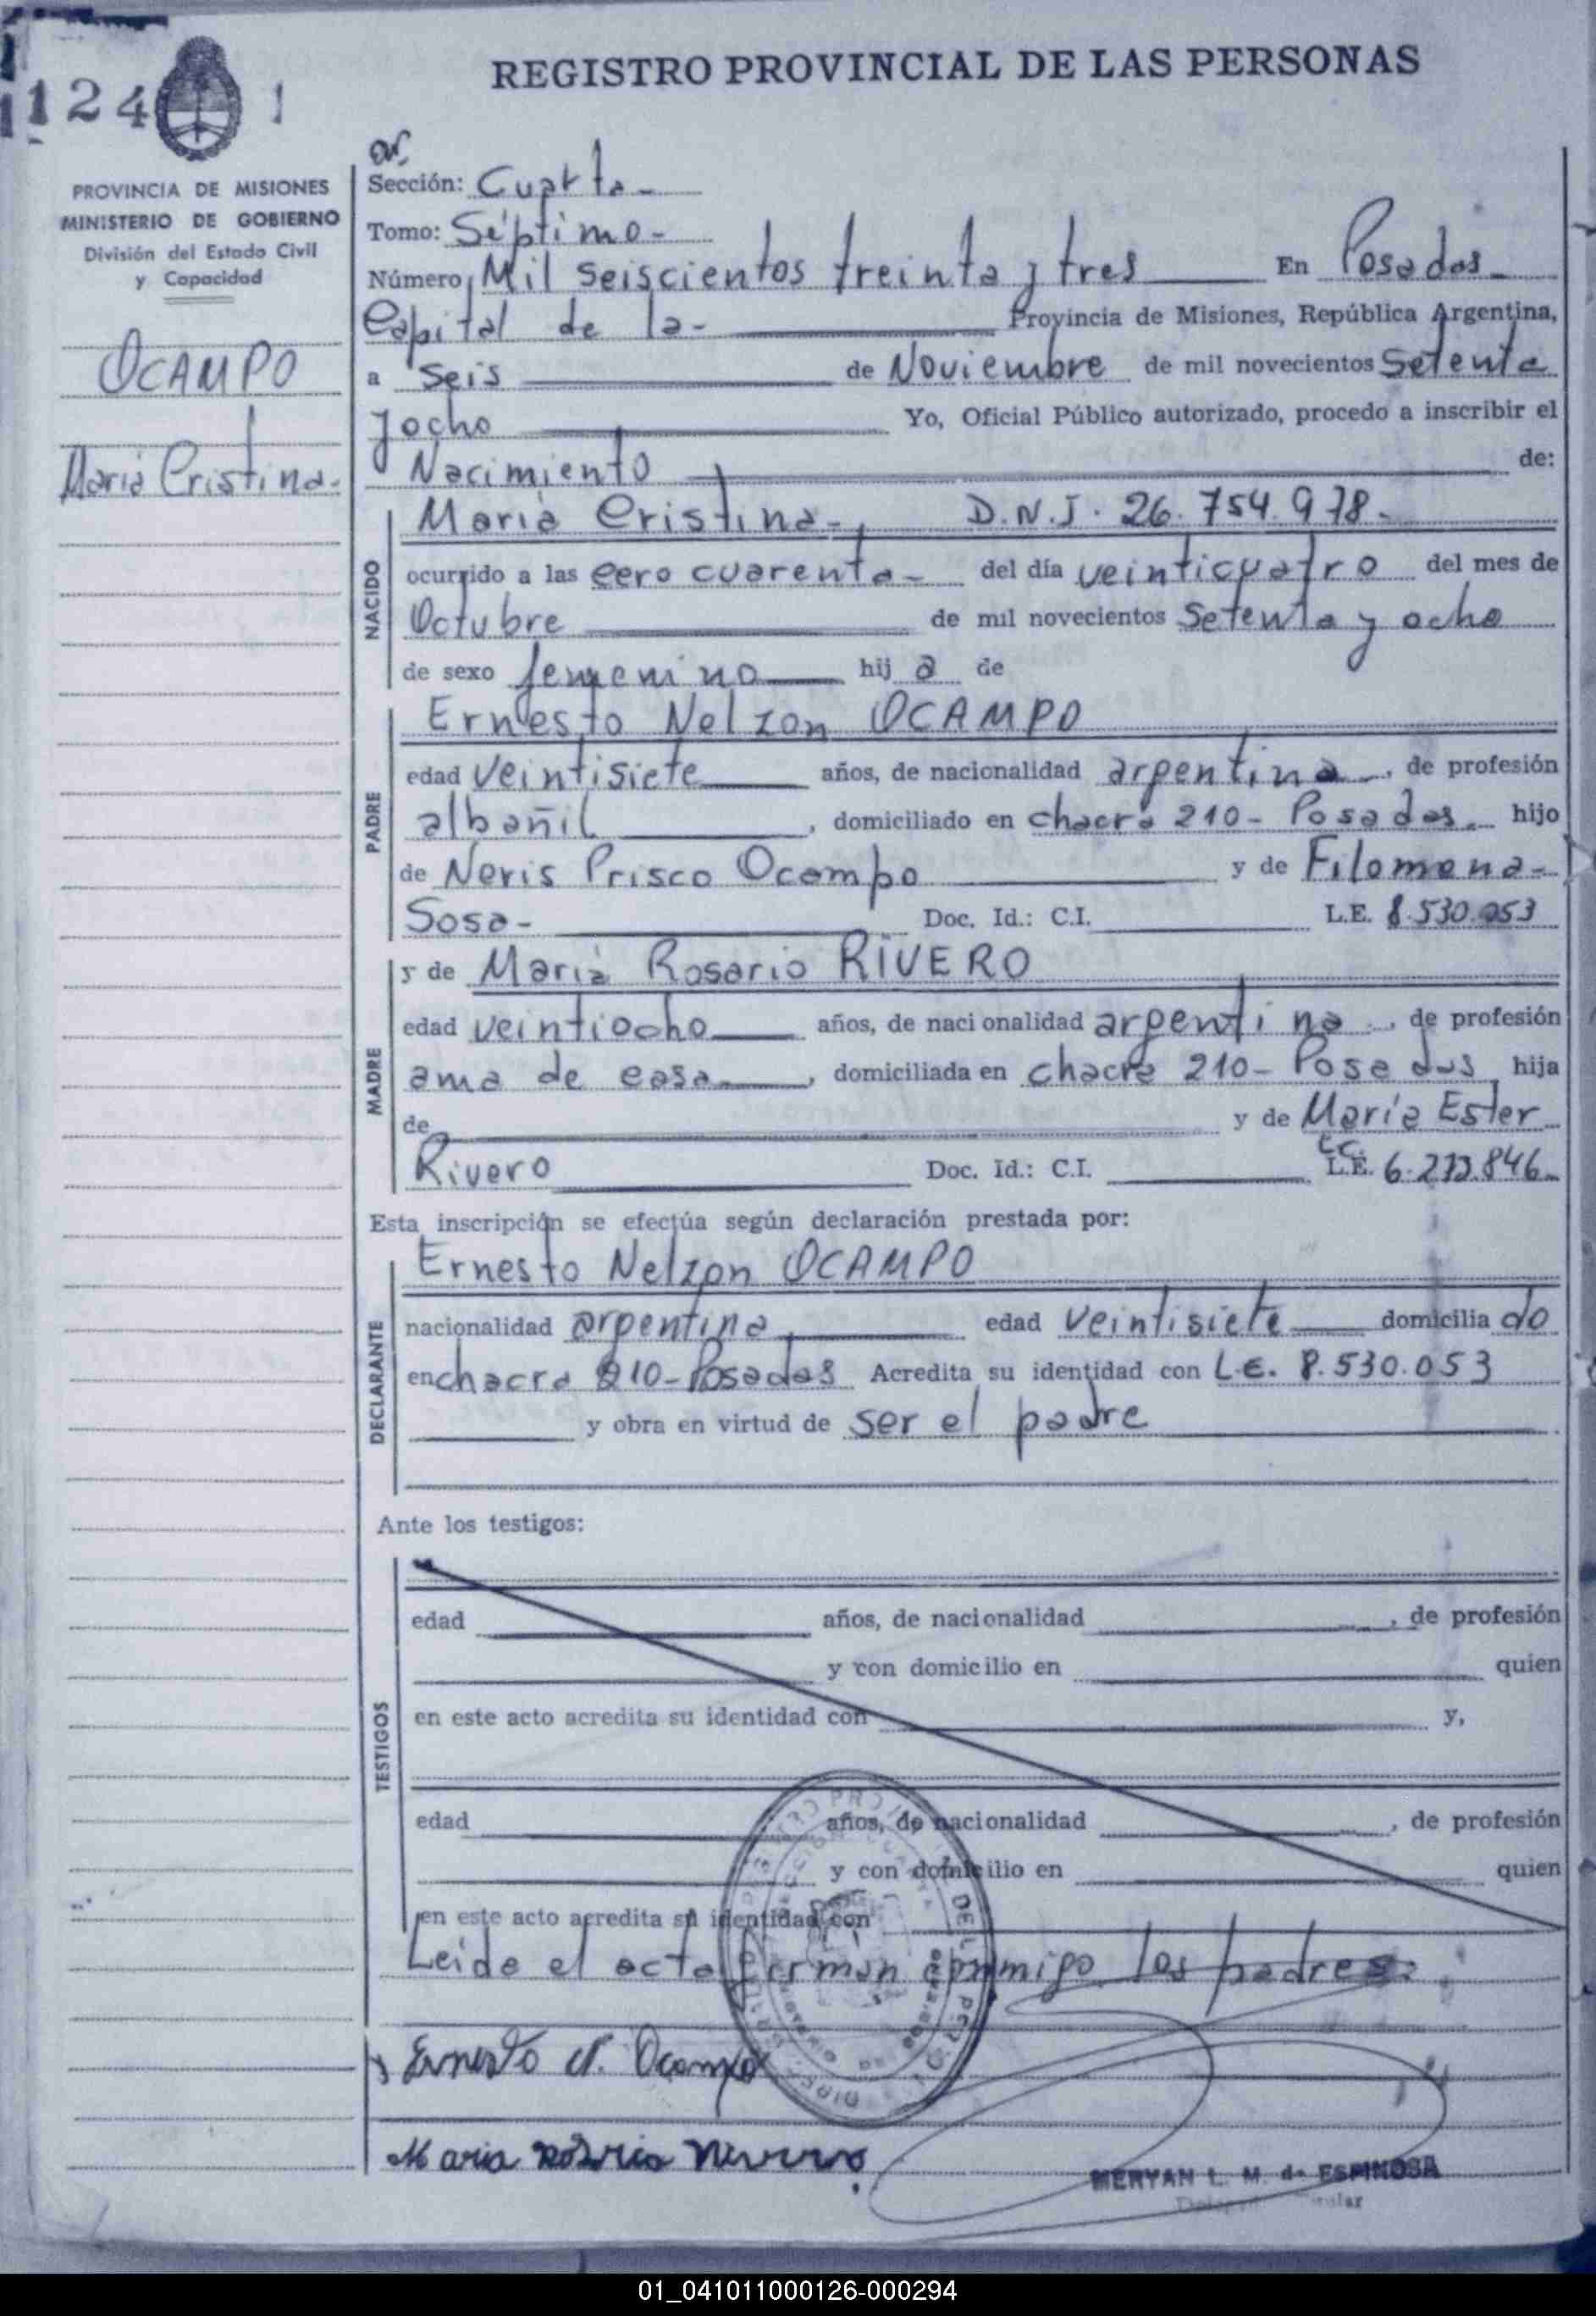 REGISTRO PROVINCIAL DE LAS PERSONAS
124
PROVINCIA DE MISIONES
MINISTERIO DE GOBIERNO
División del Estado Civil
y Capacidad
OCAMPO
Maria Cristina.
Sección: Cuarta
Tomo: Séptimo
Número Mil seiscientos treinta y tres En Posadas
Capital de la Provincia de Misiones, República Argentina,
a seis de Noviembre de mil novecientos Setenta
y ocho Yo, Oficial Público autorizado, procedo a inscribir el
Nacimiento de:
NACIDO
Maria Cristina D.N.I. 26.754.978
ocurrido a las cero cuarenta del día veinticuatro del mes de
Octubre de mil novecientos setenta y ocho
de sexo femenino hij a de
PADRE
Ernesto Nelzon OCAMPO
edad veintisiete años, de nacionalidad argentina, de profesión
albañil, domiciliado en chacra 210 - Posadas. hijo
de Neris Prisco Ocampo y de Filomena
Sosa Doc. Id.: C.I. L.E. 8.530.053
MADRE
y de Maria Rosario RIVERO
edad veintiocho años, de nacionalidad argentina, de profesión
ama de casa, domiciliada en chacra 210 - Posadas hija
de y de María Ester
Rivero Doc. Id.: C.I. L.C. L.E. 6.273.846
Esta inscripción se efectúa según declaración prestada por:
DECLARANTE
Ernesto Nelzon OCAMPO
nacionalidad argentina edad veintisiete domicilia do
en chacra 210 - Posadas Acredita su identidad con L.E. 8.530.053
y obra en virtud de ser el padre
Ante los testigos:
TESTIGOS
edad años, de nacionalidad , de profesión
y con domicilio en quien
en este acto acredita su identidad con y,
edad años, de nacionalidad , de profesión
y con domicilio en quien
en este acto acredita su identidad con
Leida el acta firman conmigo los padres.
Ernesto N. Ocampo
Maria Rosario Rivero.
MERYAN L. M. de ESPINOSA
01_041011000126-000294